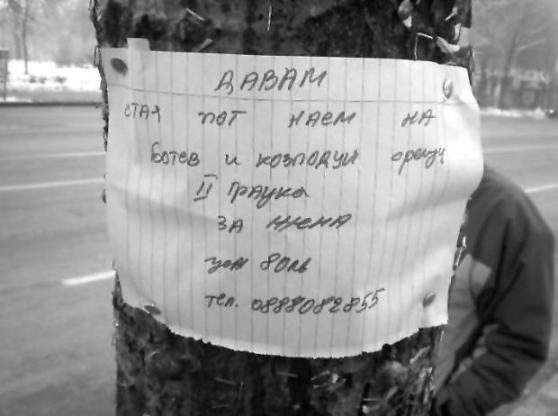 ДАВАМ
СТАЯ ПОТ НАЕМ НА
Ботев и козлодуй срещу
II Траука
ЗА жена
цом 80лв
тел. 0888082855